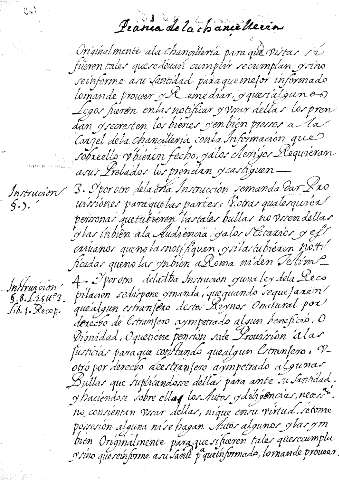 Pratica de la chancilleria
Originalmente a la Chancilleria para que vistas si
fueren tales que se devan cumplir se cumplan, y si no
se informe a su Santidad para que mejor informado
lo mande proveer y Remediar, y que si algunos
Legos fueren en las notificar y usar dellas los pren
dan y secresten los bienes y enbien presos a la
Carzel de la Chancilleria con la Informacion que
sobre ello ubieren fecho, y a los clerigos Requieran
a sus Prelados los prendan y castiguen
Instrucion
§. 7.
3. El por otro de la dha Instrucion se manda dar Pro
visiones para que las partes: Y otras qualesquier
personas que tubieren las tales bullas no usen dellas
y las inbien a la Audiencia, y a los Notarios y es
crivanos que no las notifiquen, y si las tubieren Noti
ficadas que no las ynbien a Roma ni den testim.º
Instrucion
§. 8.
lib. 1. Recop.
4. El por otro de la dha Instrucion y una ley de la Reco
pilacion se dispone y manda, que quando se quejaren
que algun estranjero destos Reynos o natural por
derecho de Estranjero a ympetrado algun beneficio, o
Dignidad, o que tiene pension se de Provision a las
justicias para que constando que algun Estranjero, u
otro por derecho de estranjero a ympetrado algunas
Bullas que suplicandose dellas para ante su Santidad,
y haciendose sobre ello los Autos y diligencias neces.ª
no consientan usar dellas, ni que en su virtud se tome
possesion alguna ni se hagan Autos algunos y las ym
bien Originalmente para que si fueren tales que se cumplan
y si no que se informe a su Sant.d p.ª que informado, lo mande proveer.